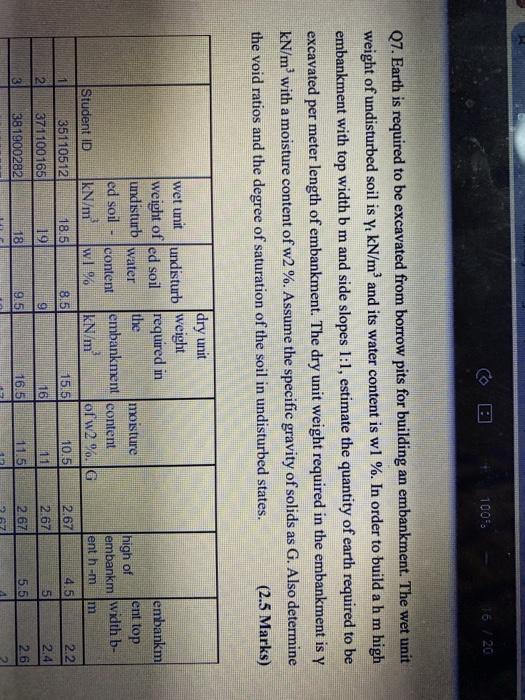 100%
16 / 20
Q7. Earth is required to be excavated from borrow pits for building an embankment. The wet unit
weight of undisturbed soil is γt kN/m³ and its water content is w1 %. In order to build a h m high
embankment with top width b m and side slopes 1:1, estimate the quantity of earth required to be
excavated per meter length of embankment. The dry unit weight required in the embankment is Y
kN/m³ with a moisture content of w2 %. Assume the specific gravity of solids as G. Also determine
the void ratios and the degree of saturation of the soil in undisturbed states. (2.5 Marks)
Student ID
wet unit
weight of
undisturb
ed soil -
kN/m³
undisturb
ed soil
water
content
w1 %
dry unit
weight
required in
the
embankment
kN/m³
moisture
content
of w2 %.
G
high of
embankm
ent h -m
embankm
ent top
width b-
m
1 35110512 18.5 8.5 15.5 10.5 2.67 4.5 2.2
2 371100165 19 9 16 11 2.67 5 2.4
3 381900282 18 9.5 16.5 11.5 2.67 5.5 2.6